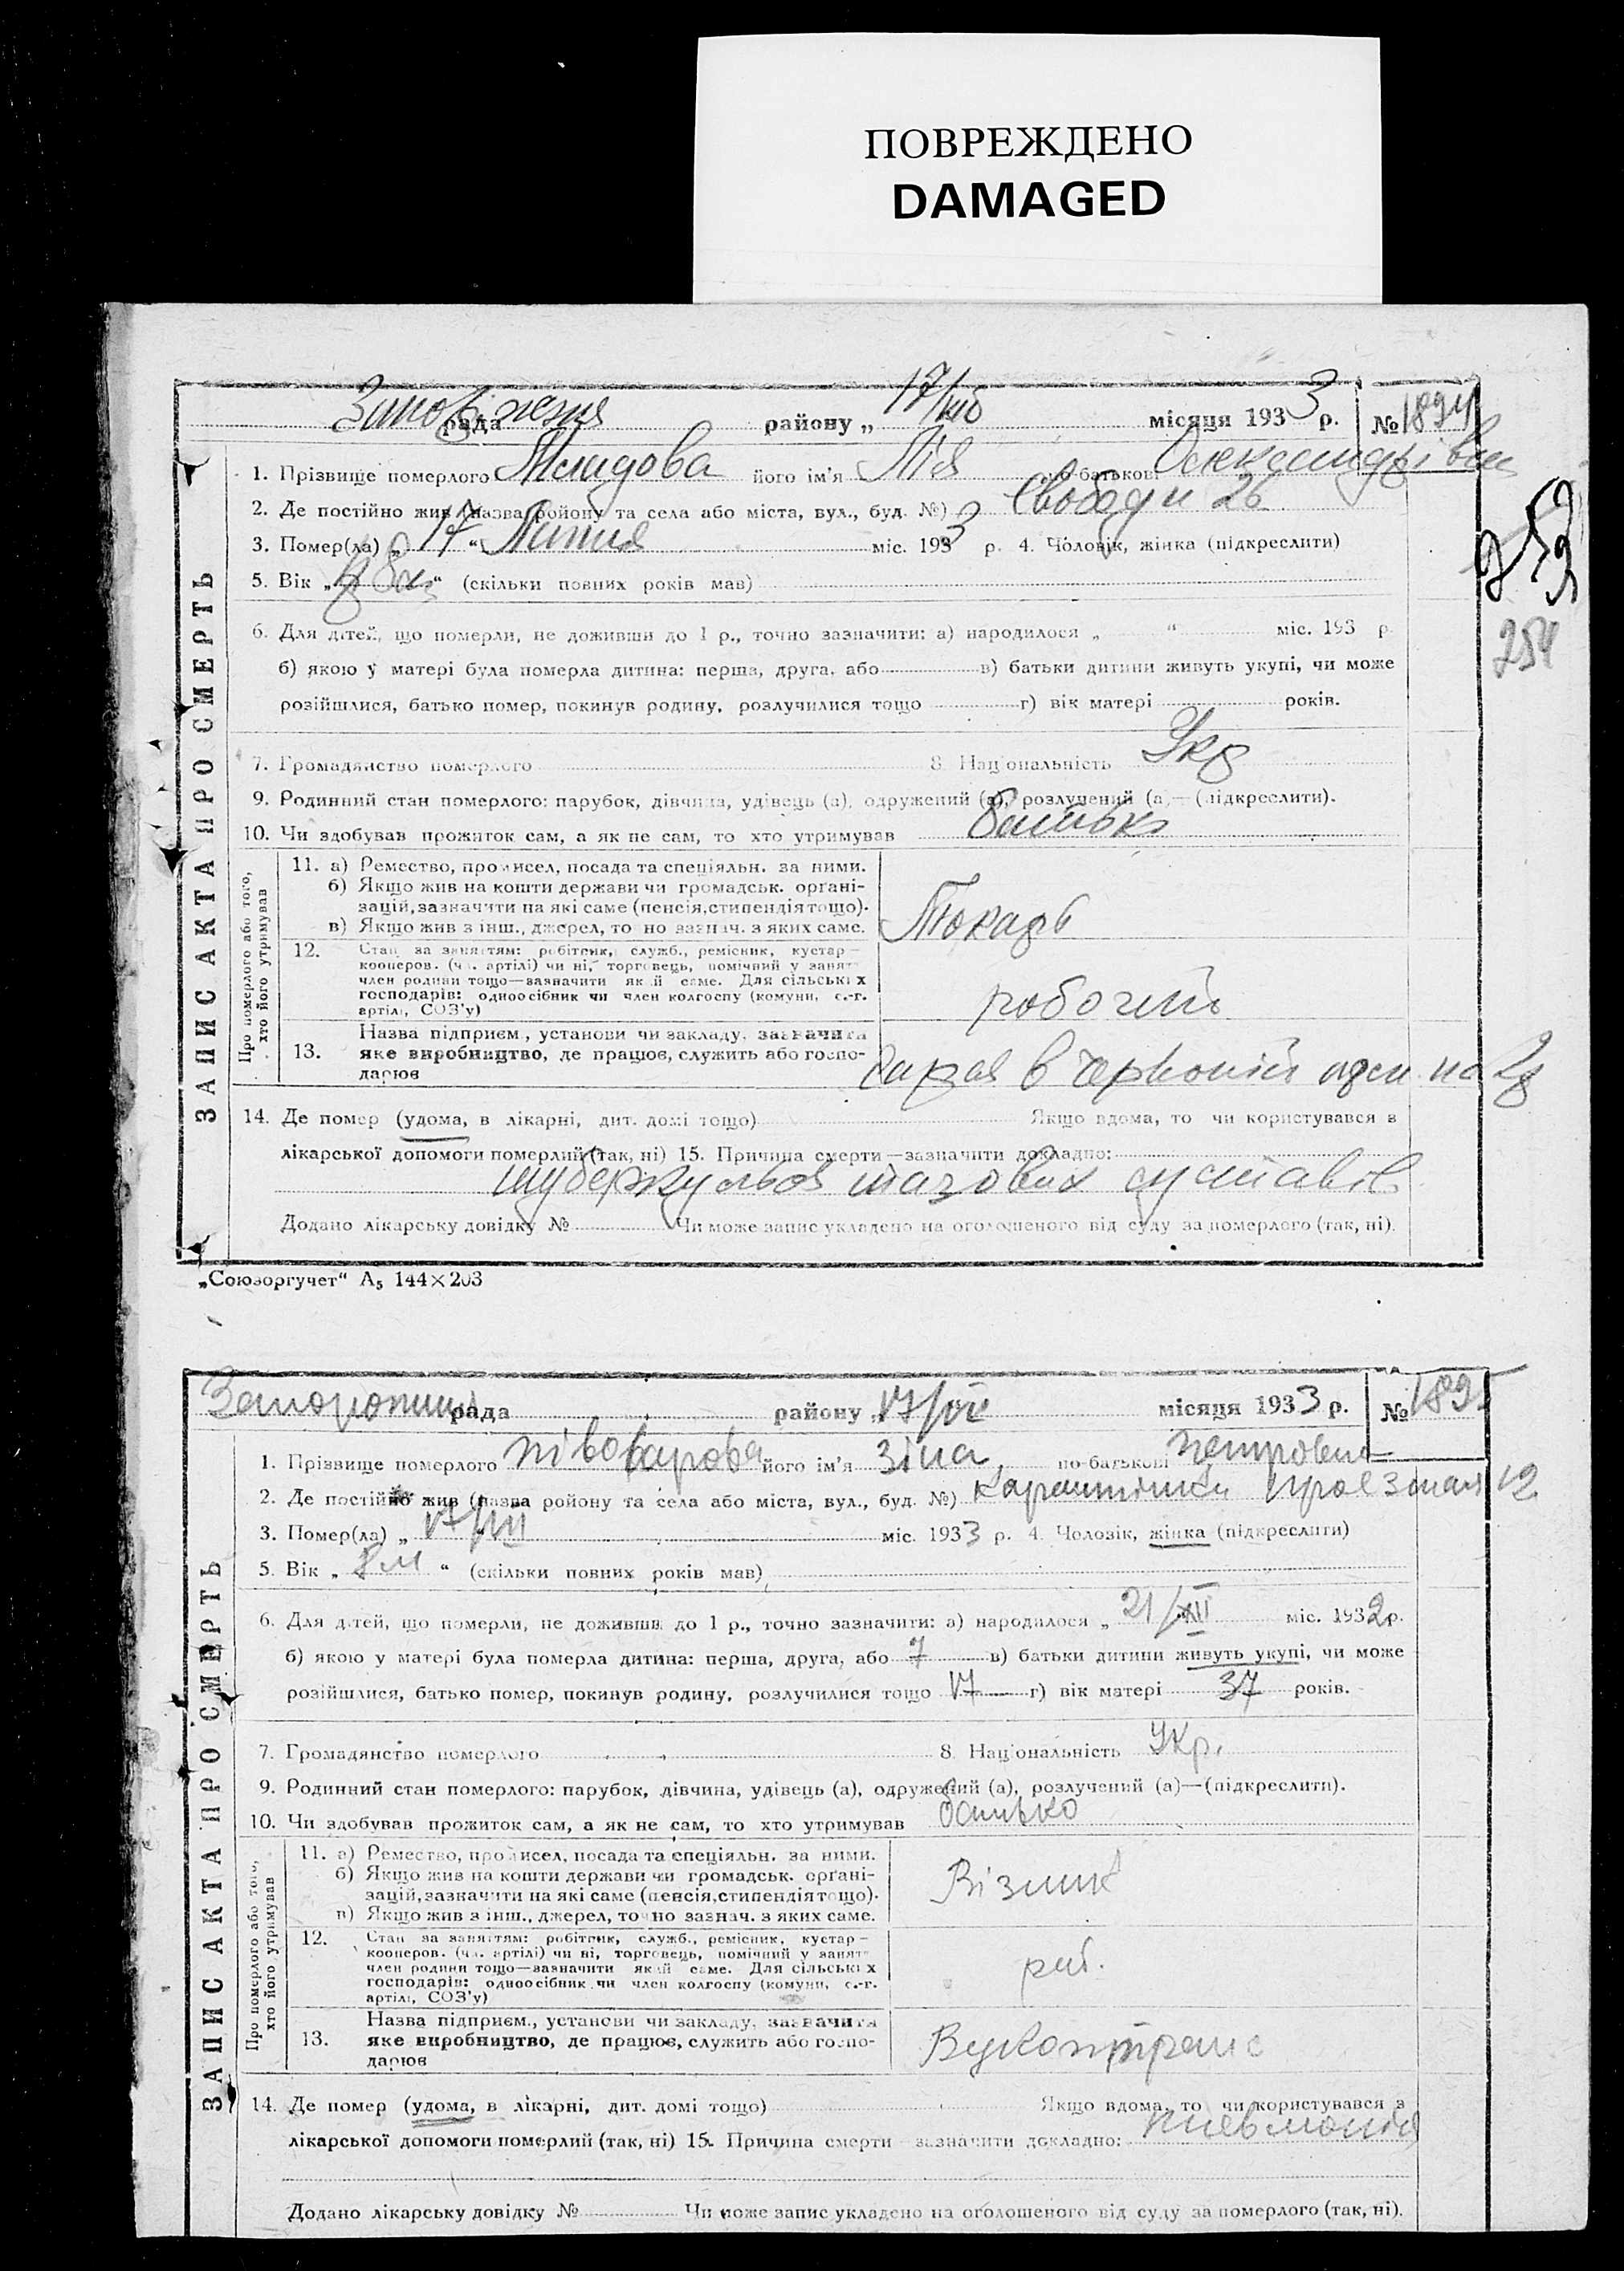 ПОВРЕЖДЕНО
DAMAGED
рада району „ 17/VIII місяця 1933 р. № 1894
1. Прізвище померлого його ім'я Лія по-батькові Олександрівна
2. Де постійно жив (назва району та села або міста, вул., буд. №) Свободи 26
3. Помер(ла) „ 17 “ Липня міс. 1933 р. 4. Чоловік, жінка (підкреслити)
5. Вік „ “ (скільки повних років мав)
254
6. Для дітей, що померли, не доживши до 1 р., точно зазначити: а) народилося „ “ міс. 193 р.
б) якою у матері була померла дитина: перша, друга, або в) батьки дитини живуть укупі, чи може
розійшлися, батько помер, покинув родину, розлучилися тощо г) вік матері років.
7. Громадянство померлого 8. Національність Укр
9. Родинний стан померлого: парубок, дівчина, удівець (а), одружений (а), розлучений (а)—(підкреслити).
10. Чи здобував прожиток сам, а як не сам, то хто утримував батько
ЗАПИС АКТА ПРО СМЕРТЬ
Про померлого або того, хто його утримував
11. а) Ремество, промисел, посада та спеціяльн. за ними.
б) Якщо жив на кошти держави чи громадськ. органі-
зацій, зазначити на які саме (пенсія, стипендія тощо).
в) Якщо жив з інш., джерел, то но зазнач. з яких саме.
Токарь
12. Стан за заняттям: робітник, служб., ремісник, кустар—
кооперов. (чл. артілі) чи ні, торговець, помічний у занят—
член родини тощо—зазначити який саме. Для сільських
господарів: одноосібник чи член колгоспу (комуни, с.-г.
артілі, СОЗ'у)
робочий
13. Назва підприєм., установи чи закладу, зазначити
яке виробництво, де працює, служить або госпо-
дарює
зараз в Червоній
14. Де помер (удома, в лікарні, дит. домі тощо) Якщо вдома, то чи користувався з
лікарської допомоги померлий (так, ні) 15. Причина смерти—зазначити докладно:
туберкульоз тазових суставів
Додано лікарську довідку № Чи може запис укладено на оголошеного від суду за померлого (так, ні).
„Союзоргучет“ А5 144×203
рада району „ 17/VII місяця 1933 р. № 1895
1. Прізвище померлого Півоварова його ім'я Зіна по-батькові Петровна
2. Де постійно жив (назва району та села або міста, вул., буд. №) 12
3. Помер(ла) „ 17/VII міс. 1933 р. 4. Чоловік, жінка (підкреслити)
5. Вік „ 8 м “ (скільки повних років мав)
6. Для дітей, що померли, не доживши до 1 р., точно зазначити: а) народилося „ 21/XII міс. 1932 р.
б) якою у матері була померла дитина: перша, друга, або 7 в) батьки дитини живуть укупі, чи може
розійшлися, батько помер, покинув родину, розлучилися тощо 17 г) вік матері 37 років.
7. Громадянство померлого 8. Національність Укр.
9. Родинний стан померлого: парубок, дівчина, удівець (а), одружений (а), розлучений (а)—(підкреслити).
10. Чи здобував прожиток сам, а як не сам, то хто утримував батько
ЗАПИС АКТА ПРО СМЕРТЬ
Про померлого або того, хто його утримував
11. а) Ремество, промисел, посада та спеціяльн. за ними.
б) Якщо жив на кошти держави чи громадськ. органі-
зацій, зазначити на які саме (пенсія, стипендія тощо).
в) Якщо жив з інш., джерел, точно зазнач. з яких саме.
Візник
12. Стан за заняттям: робітник, служб., ремісник, кустар—
кооперов. (чл. артілі) чи ні, торговець, помічний у занят—
член родини тощо—зазначити який саме. Для сільських
господарів: одноосібник чи член колгоспу (комуни, с.-г.
артілі, СОЗ'у)
роб.
13. Назва підприєм., установи чи закладу, зазначити
яке виробництво, де працює, служить або госпо-
дарює
Вукоптранс
14. Де помер (удома, в лікарні, дит. домі тощо) Якщо вдома, то чи користувався з
лікарської допомоги померлий (так, ні) 15. Причина смерти зазначити докладно: пневмонія
Додано лікарську довідку № Чи може запис укладено на оголошеного від суду за померлого (так, ні).